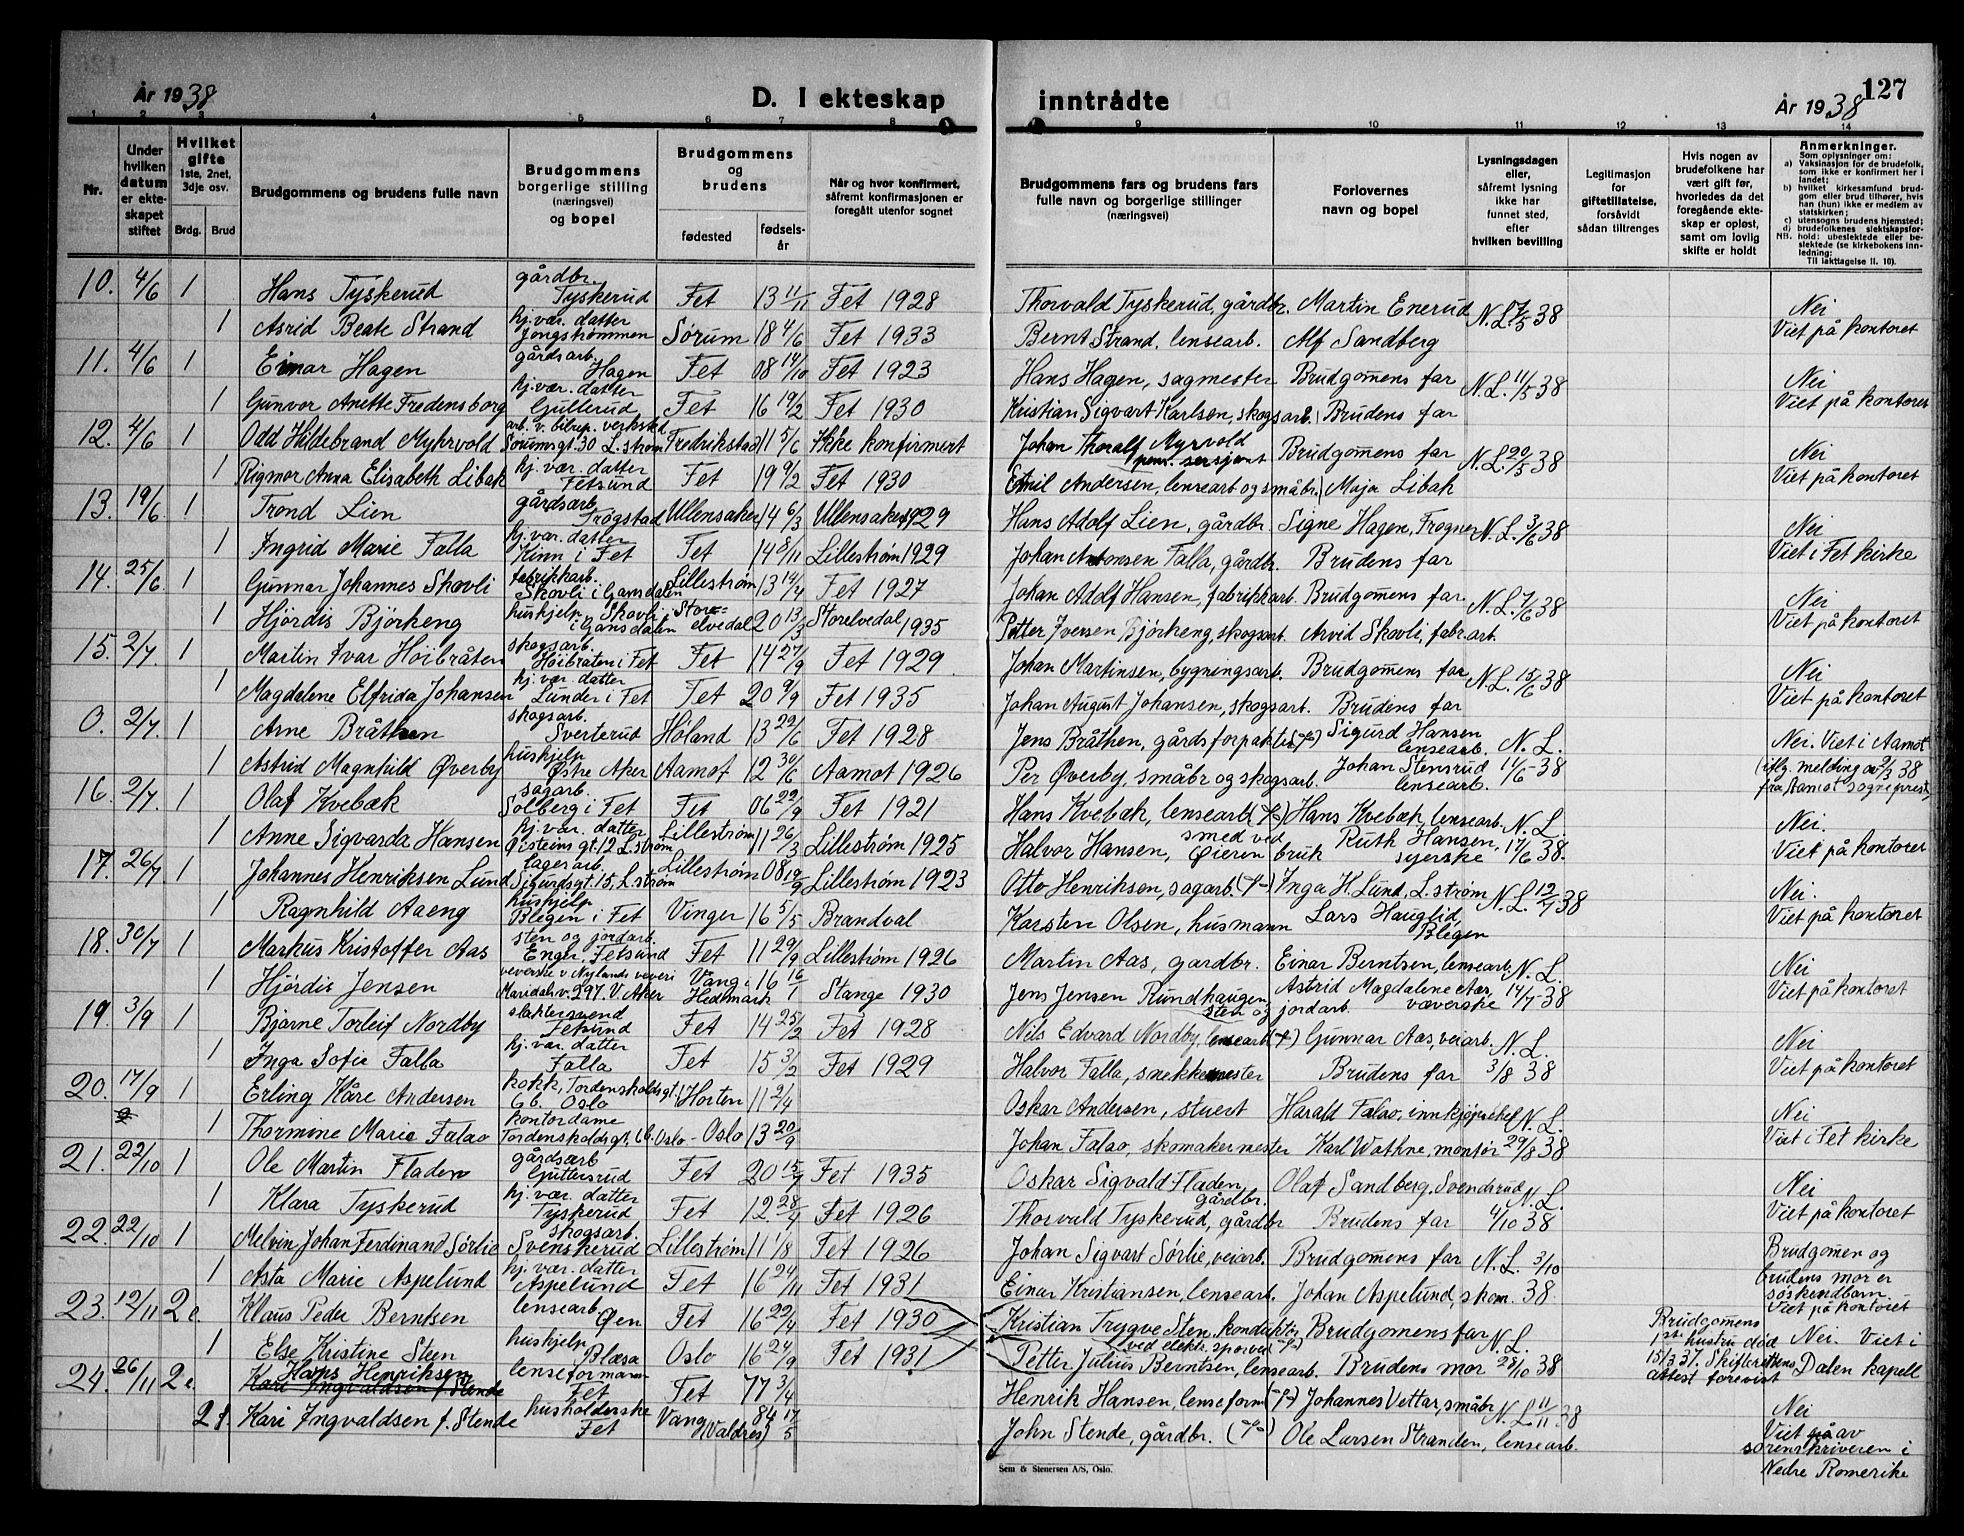 År 1938
D. I ekteskap
1 2 3 4 5 6 7 8
Nr.
Under hvilken datum er ekteskapet stiftet
Hvilket gifte 1ste, 2net, 3dje osv.
Brdg. Brud
Brudgommens og brudens fulle navn
Brudgommens borgerlige stilling (næringsvei) og bopel
Brudgommens og brudens
fødested fødselsår
Når og hvor konfirmert, såfremt konfirmasjonen er foregått utenfor sognet
10. 4/6 1 Hans Tyskerud gårdbr. Tyskerud Fet 13 11/11 Fet 1928
1 Astrid Beate Strand hj.vær. datter Jongstrømmen Sørum 18 4/6 Fet 1933
11. 4/6 1 Einar Hagen gårdsarb. Hagen Fet 08 14/10 Fet 1923
1 Gunvor Anette Fredensborg hj.vær. datter Gullerud Fet 16 19/2 Fet 1930
12. 4/6 1 Odd Hildebrand Myhrvold arb. v. bilrep. verksted Sørumsgt. 30 L.strøm Fredrikstad 11 5/6 Ikke konfirmert
1 Rigmor Anna Elisabeth Libak hj. vær. datter Fetsund Fet 19 9/2 Fet 1930
13. 19/6 1 Trond Lien gårdsarb Trøgstad Ullensaker 14 6/3 Ullensaker 1929
1 Ingrid Marie Falla hj. vær. datter Kinn i Fet Fet 14 8/11 Lillestrøm 1929
14. 25/6 1 Gunnar Johannes Skovli fabrikkarb. Skovli i Gansdalen Lillestrøm 13 14/4 Fet 1927
1 Hjördis Björkeng hushjelp, Skovli i Gansdalen Storelvedal 20 13/3 Storelvedal 1935
15. 2/7. 1 Martin Ivar Höibråten skogsarb. Höibråten i Fet Fet 14 27/9 Fet 1929
1 Magdalene Elfrida Johansen hj. vær. datter Lunder i Fet Fet 20 9/9 Fet 1935
0. 2/7. 1 Arne Bråthen skogsarb. Sverterud Høland 13 22/6 Fet 1928
1 Astrid Magnhild Øverby hushjelp Østre Aker Aamot 12 30/6 Aamot 1926
16. 2/7. 1 Olaf Kvebæk sagarb. Solberg i Fet Fet 06 22/9 Fet 1921
1 Anne Sigvarda Hansen hj. vær. datter Øisteins gt. 12 L.strøm Lillestrøm 11 26/3 Lillestrøm 1925
17. 26/7 1 Johannes Henriksen Lund lagerarb. Sigurdsgt. 15, L.strøm Lillestrøm 08 19/9 Lillestrøm 1923
1 Ragnhild Aaeng hushjelp Blegen i Fet Vinger 16 5/5 Brandval
18. 30/7 1 Markus Kristoffer Aas sten og jordarb. Enger, Fetsund Fet 11 29/9 Lillestrøm 1926
1 Hjördis Jensen veverske v. Nylands veveri Maridalsv. 297. V. Aker Vang i Hedmark 16 16/1 Stange 1930
19. 3/9 1 Bjarne Torleif Nordby slaktersvend Fetsund Fet 14 25/2 Fet 1928
1 Inga Sofie Falla hj. vær. datter Falla Fet 15 3/2 Fet 1929
20. 17/9 1 Erling Kåre Andersen kokk, Tordenskoldsgt. 6b. Oslo Horten 11 2/4
1 Thormine Marie Falao kontordame Tordenskoldsgt. 6b. Oslo - Oslo 13 20/9
21. 22/10 1 Ole Martin Fladen gårdsarb Guttersrud Fet 20 15/7 Fet 1935
1 Klara Tyskerud hj. vær. datter Tyskerud Fet 12 28/4 Fet 1926
22. 22/10 1 Melvin Johan Ferdinand Sørlie skogsarb. Svenskerud Lillestrøm 11 1/8 Fet 1926
1 Asta Marie Aspelund hj. vær. datter Aspelund Fet 16 24/11 Fet 1931
23. 12/11 2 e. Klaus Peder Berntsen lensearb. Øen Fet 16 22/4 Fet 1930
1 Else Kristine Steen hushjelp Blæsa Oslo 16 24/9 Fet 1931
24. 26/11 2 e. Hans Henriksen Kari Ingvaldsen f. Stende lenseformann Fet Fet 77 3/4
2 f. Kari Ingvaldsen f. Stende husholderske Fet Vang (Valdres) 84 17/5
inntrådte
År 1938 127
9 10 11 12 13 14
Brudgommens fars og brudens fars fulle navn og borgerlige stillinger (næringsvei)
Forlovernes navn og bopel
Lysningsdagen eller, såfremt lysning ikke har funnet sted, efter hvilken bevilling
Legitimasjon for giftetillatelse, forsåvidt sådan tiltrenges
Hvis nogen av brudefolkene har vært gift før, hvorledes da det foregående ekteskap er opløst, samt om lovlig skifte er holdt
Anmerkninger.
Som oplysninger om:
a) Vaksinasjon for de brudefolk, som ikke er konfirmert her i landet;
b) hvilket kirkesamfund brudgom eller brud tilhører, hvis han (hun) ikke er medlem av statskirken;
c) utensogns brudens hjemsted;
d) brudefolkenes slektskapsforhold: ubeslektede eller beslektede (se kirkebokens innledning:
NB. Til iakttagelse II. 10).
Thorvald Tyskerud, gårdbr. Martin Enerud N.L. 7/5 38 Nei
Bernt Strand, lensearb. Alf Sandberg Viet på kontoret
Hans Hagen, sagmester Brudgomens far N.L. 11/5 38 Nei
Kristian Sigvart Karlsen, skogsarb. Brudens far Viet på kontoret
Johan Thoralf Myrvold pens. sersjant Brudgomens far N.L. 20/5 38 Nei
Emil Andersen, lensearb og småbr. Maja Libak Viet på kontoret
Hans Adolf Lien, gårdbr. Signe Hagen, Frogner N.L. 3/6 38 Nei
Johan Antonsen Falla, gårdbr. Brudens far Viet i Fet kirke
Johan Adolf Hansen, fabrikkarb. Brudgomens far. N.L. 7/6 38 Nei
Petter Iversen Björkeng, skogsarb. Arvid Skovli, fabr.arb. Viet på kontoret
Johan Martinsen, bygningsarb. Brudgomens far N.L. 15/6 38 Nei
Johan August Johansen, skogsarb. Brudens far Viet på kontoret
Jens Bråthen, gårdsforpakter Sigurd Hansen lensearb. N.L. Nei. Viet i Aamot
Per Øverby, småbr og skogsarb. Johan Stensrud lensearb. 14/6 38 iflg. melding av 2/3 38 fra Aamot sogneprest
Hans Kvebæk, lensearb Hans Kvebæk, lensearb. N.L. Nei.
Halvor Hansen, smed ved Øieren bruk Ruth Hansen, syerske 17/6 38. Viet på kontoret
Otto Henriksen, sagarb. Inga H. Lund, L.strøm N.L. 12/7 38 Nei.
Karsten Olsen, husmann Lars Hauglid Blegen Viet på kontoret
Martin Aas, gardbr. Einar Berntsen, lensearb. N.L. Nei
Jens Jensen Rundhaugen, sten og jordarb. Astrid Magdalene Aas, væverske 14/7 38 Viet på kontoret
Nils Edvard Nordby, lensearb Gunnar Aas, veiarb. N.L. Nei
Halvor Falla, snekkermester Brudens far 3/8 38 Viet på kontoret
Oskar Andersen, stuert Harald Falao, innkjøpssjef N.L. Nei
Johan Falao, skomakermester Karl Wathne, montør 29/8 38 Viet i Fet kirke
Oskar Sigvald Fladen, gårdbr. Olaf Sandberg, Svendsrud N.L. Nei
Thorvald Tyskerud, gårdbr Brudens far 4/10 38 Viet på kontoret
Johan Sigvart Sørlie, veiarb. Brudgomens far N.L. 3/10 Brudgomen og
Einar Kristiansen, lensearb. Johan Aspelund, skom. 38 brudens mor er søskendbarn. Viet på kontoret
Kristian Trygve Sten, konduktør ved elektr. sporvei Brudgomens far N.L. Brudgomens 1ste hustru død Nei. Viet i
Petter Julius Berntsen, lensearb. Brudens mor 28/10 38 15/3 37. Skifterettens attest forevist Dalen kapell
Henrik Hansen, lenseform Johannes Vettar, småbr N.L. 11/11 38 Nei
John Stende, gårdbr. Ole Larsen Stranden, lensearb. Viet av sorenskriveren i Nedre Romerike
Sem & Stenersen A/S, Oslo.